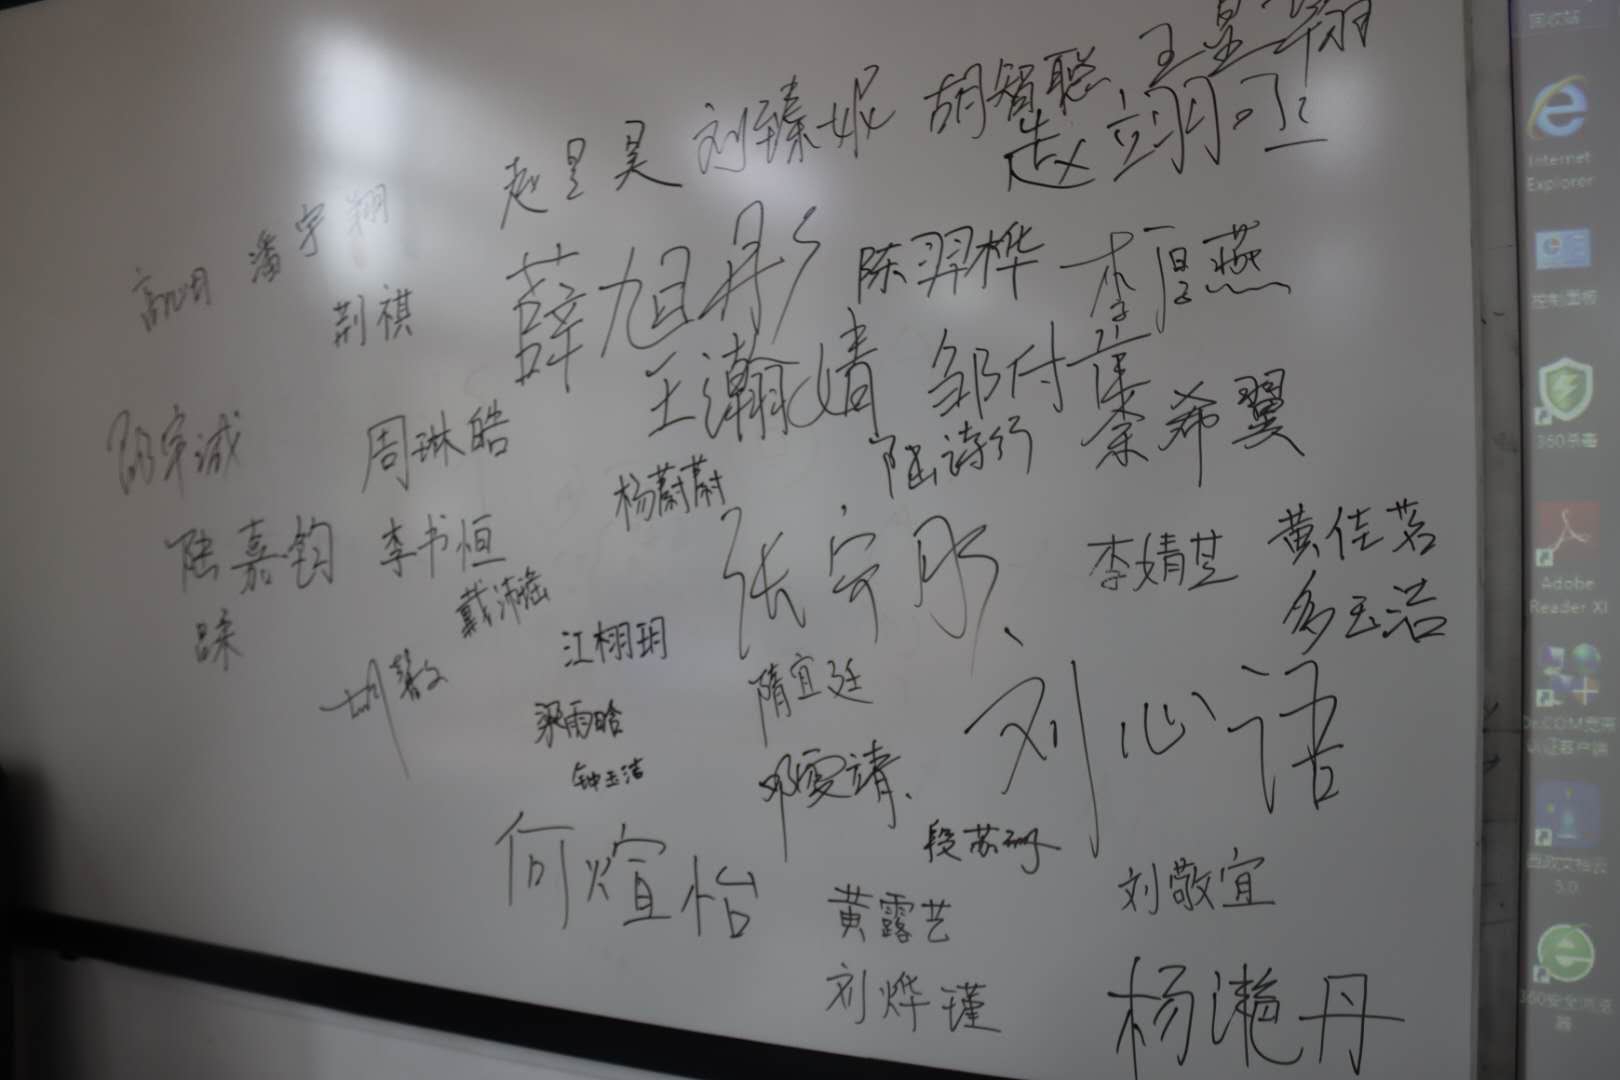 王星翰
胡智聪
刘臻妮
赵昱昊
赵翊
潘宇翔
荆祺
薛旭彤
陈羿桦
李厚燕
王瀚婧
邹付
余希翼
陆诗行
周琳皓
宇诚
杨蔚蔚
陆嘉钧
李书恒
张宇彤
李婧芝
黄佳茗
玉洁
戴沛
江栩玥
胡馨文
隋宜廷
梁雨晗
钟玉洁
邓雯靖
刘心语
段苏珊
何煊怡
黄露艺
刘敬宜
刘烨瑾
杨滟丹
回收站
Internet
Explorer
控制面板
360杀毒
Adobe
Reader XI
Dr.COM宽带
认证客户端
西政文档云
5.0
360安全浏览
器